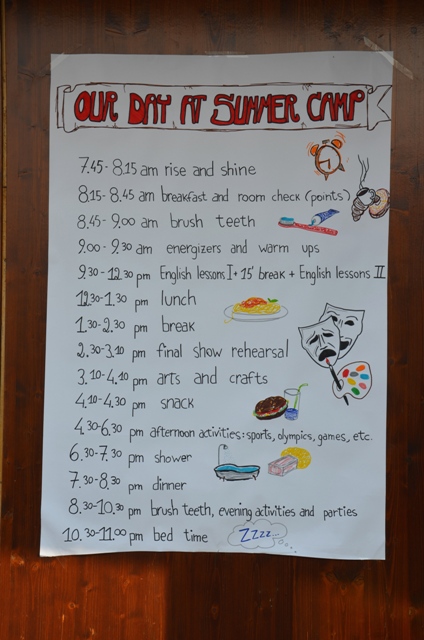 OUR DAY AT SUMMER CAMP
7.45 - 8.15 am rise and shine
8.15 - 8.45 am breakfast and room check (points)
8.45 - 9.00 am brush teeth
9.00 - 9.30 am energizers and warm ups
9.30 - 12.30 pm English lessons I + 15' break + English lessons II
12.30 - 1.30 pm lunch
1.30 - 2.30 pm break
2.30 - 3.10 pm final show rehearsal
3.10 - 4.10 pm arts and crafts
4.10 - 4.30 pm snack
4.30 - 6.30 pm afternoon activities: sports, olympics, games, etc.
6.30 - 7.30 pm shower
7.30 - 8.30 pm dinner
8.30 - 10.30 pm brush teeth, evening activities and parties
10.30 - 11.00 pm bed time Zzzz...